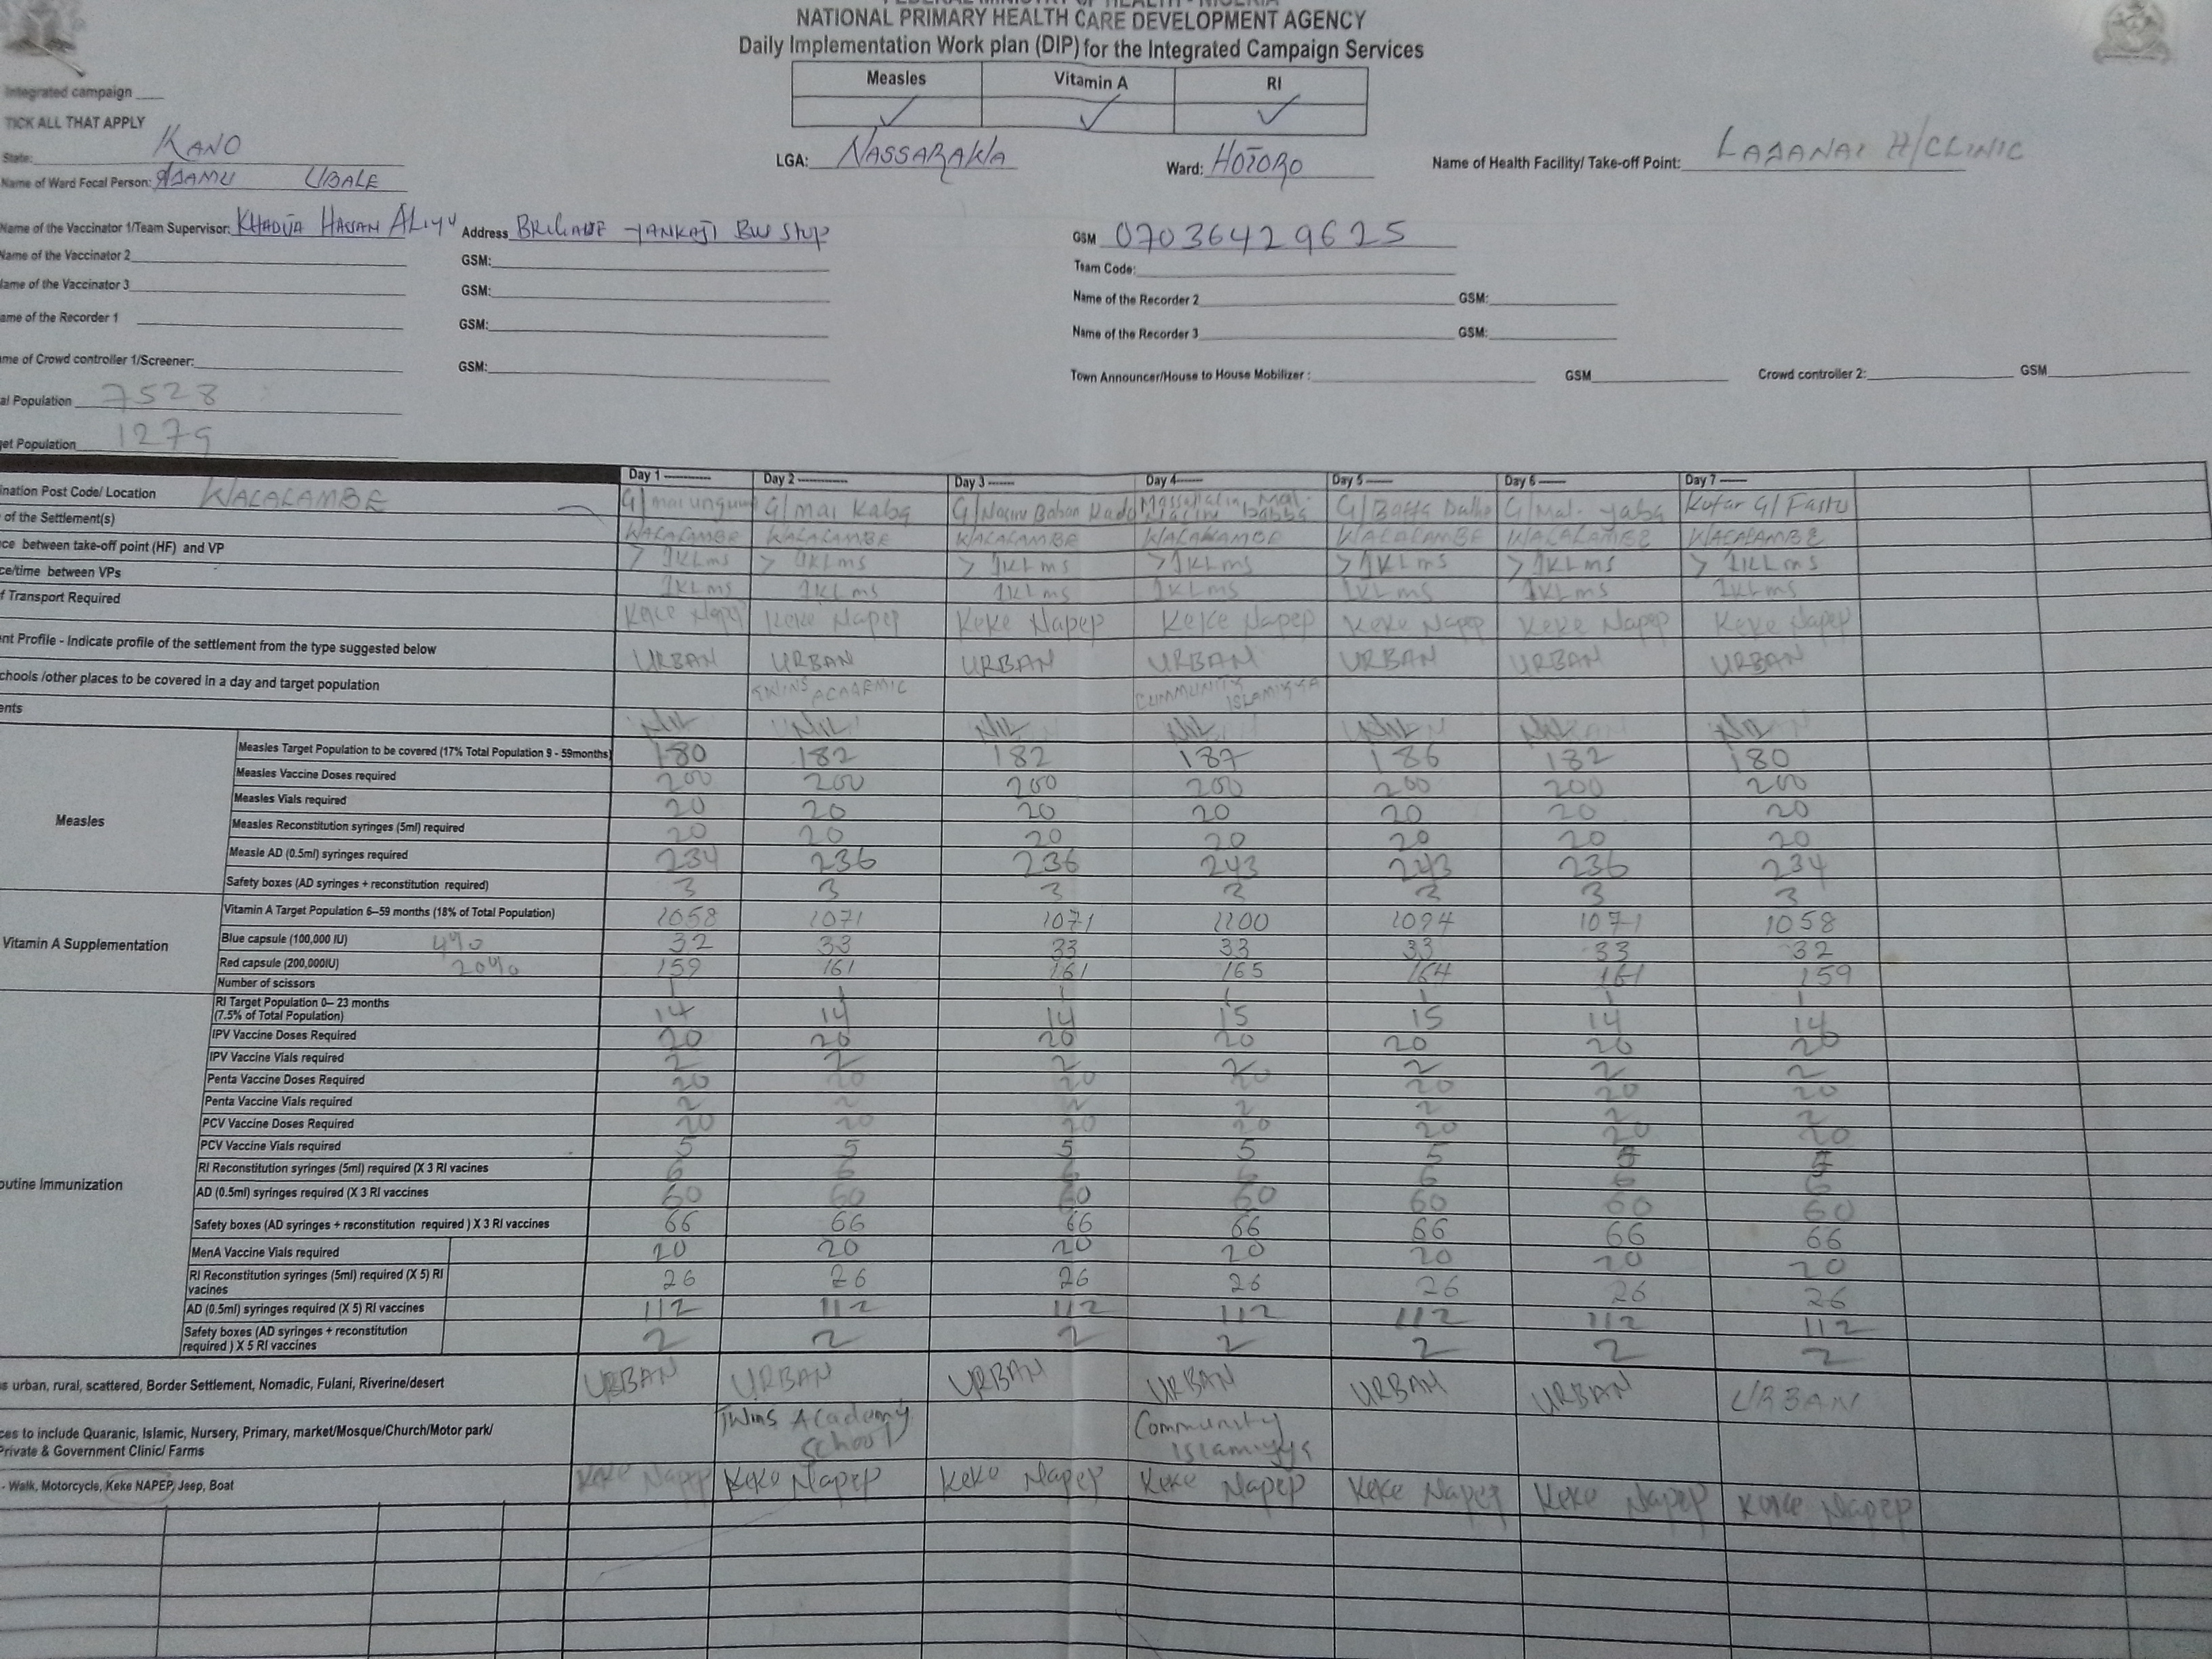 NATIONAL PRIMARY HEALTH CARE DEVELOPMENT AGENCY
Daily Implementation Work plan (DIP) for the Integrated Campaign Services
Measles Vitamin A RI
✓ ✓ ✓
Integrated campaign
TICK ALL THAT APPLY
State: KANO LGA: NASSARAWA Ward: HOTORO Name of Health Facility/ Take-off Point: H/CLINIC
Name of Ward Focal Person: ADAMU UBALE
Name of the Vaccinator 1/Team Supervisor: KHADIJA HASSAN ALIYU Address BRIGADE YANKAJI BUS STOP GSM 07036429625
Name of the Vaccinator 2 GSM: Team Code:
Name of the Vaccinator 3 GSM: Name of the Recorder 2 GSM:
ame of the Recorder 1 GSM: Name of the Recorder 3 GSM:
me of Crowd controller 1/Screener: GSM: Town Announcer/House to House Mobilizer : GSM Crowd controller 2: GSM
al Population 7528
get Population 1279
Day 1 Day 2 Day 3 Day 4 Day 5 Day 6 Day 7
ination Post Code/ Location WALALAMBE G/mai unguwa G/mai Kaba G/Nasiru Baban Kado G/ Mal. Yaba Kofar G/
of the Settlement(s) WALALAMBE WALALAMBE WALALAMBE WALALAMBE WALALAMBE WALALAMBE WALALAMBE
ce between take-off point (HF) and VP > 1KLms > 1KLms > 1KLms >1KLms >1KLms >1KLms > 1KLms
ce/time between VPs 1KLms 1KLms 1KLms 1KLms 1KLms 1KLms 1KLms
f Transport Required Keke Napep Keke Napep Keke Napep Keke Napep Keke Napep Keke Napep Keke Napep
nt Profile - Indicate profile of the settlement from the type suggested below URBAN URBAN URBAN URBAN URBAN URBAN URBAN
chools /other places to be covered in a day and target population TWINS ACADEMIC COMMUNITY ISLAMIYYA
ents NIL NIL NIL NIL NIL NIL NIL
Measles
Measles Target Population to be covered (17% Total Population 9 - 59months) 180 182 182 187 186 182 180
Measles Vaccine Doses required 200 200 200 200 200 200 200
Measles Vials required 20 20 20 20 20 20 20
Measles Reconstitution syringes (5ml) required 20 20 20 20 20 20 20
Measle AD (0.5ml) syringes required 234 236 236 243 243 236 234
Safety boxes (AD syringes + reconstitution required) 3 3 3 3 3 3 3
Vitamin A Supplementation
Vitamin A Target Population 6–59 months (18% of Total Population) 1058 1071 1071 1100 1094 1071 1058
Blue capsule (100,000 IU) 4% 32 33 33 33 33 33 32
Red capsule (200,000IU) 20% 159 161 161 165 164 161 159
Number of scissors 1 1 1 1 1 1 1
outine Immunization
RI Target Population 0– 23 months
(7.5% of Total Population) 14 14 14 15 15 14 14
IPV Vaccine Doses Required 20 20 20 20 20 20 20
IPV Vaccine Vials required 2 2 2 2 2 2 2
Penta Vaccine Doses Required 20 20 20 20 20 20 20
Penta Vaccine Vials required 2 2 2 2 2 2 2
PCV Vaccine Doses Required 20 20 20 20 20 20 20
PCV Vaccine Vials required 5 5 5 5 5 5 5
RI Reconstitution syringes (5ml) required (X 3 RI vacines 6 6 6 6 6 6 6
AD (0.5ml) syringes required (X 3 RI vaccines 60 60 60 60 60 60 60
Safety boxes (AD syringes + reconstitution required ) X 3 RI vaccines 66 66 66 66 66 66 66
MenA Vaccine Vials required 20 20 20 20 20 20 20
RI Reconstitution syringes (5ml) required (X 5) RI
vacines 26 26 26 26 26 26 26
AD (0.5ml) syringes required (X 5) RI vaccines 112 112 112 112 112 112 112
Safety boxes (AD syringes + reconstitution
required ) X 5 RI vaccines 2 2 2 2 2 2 2
s urban, rural, scattered, Border Settlement, Nomadic, Fulani, Riverine/desert URBAN URBAN URBAN URBAN URBAN URBAN URBAN
ces to include Quaranic, Islamic, Nursery, Primary, market/Mosque/Church/Motor park/ Twins Academy Community
Private & Government Clinic/ Farms School Islamiyya
- Walk, Motorcycle, Keke NAPEP, Jeep, Boat Keke Napep Keke Napep Keke Napep Keke Napep Keke Napep Keke Napep Keke Napep